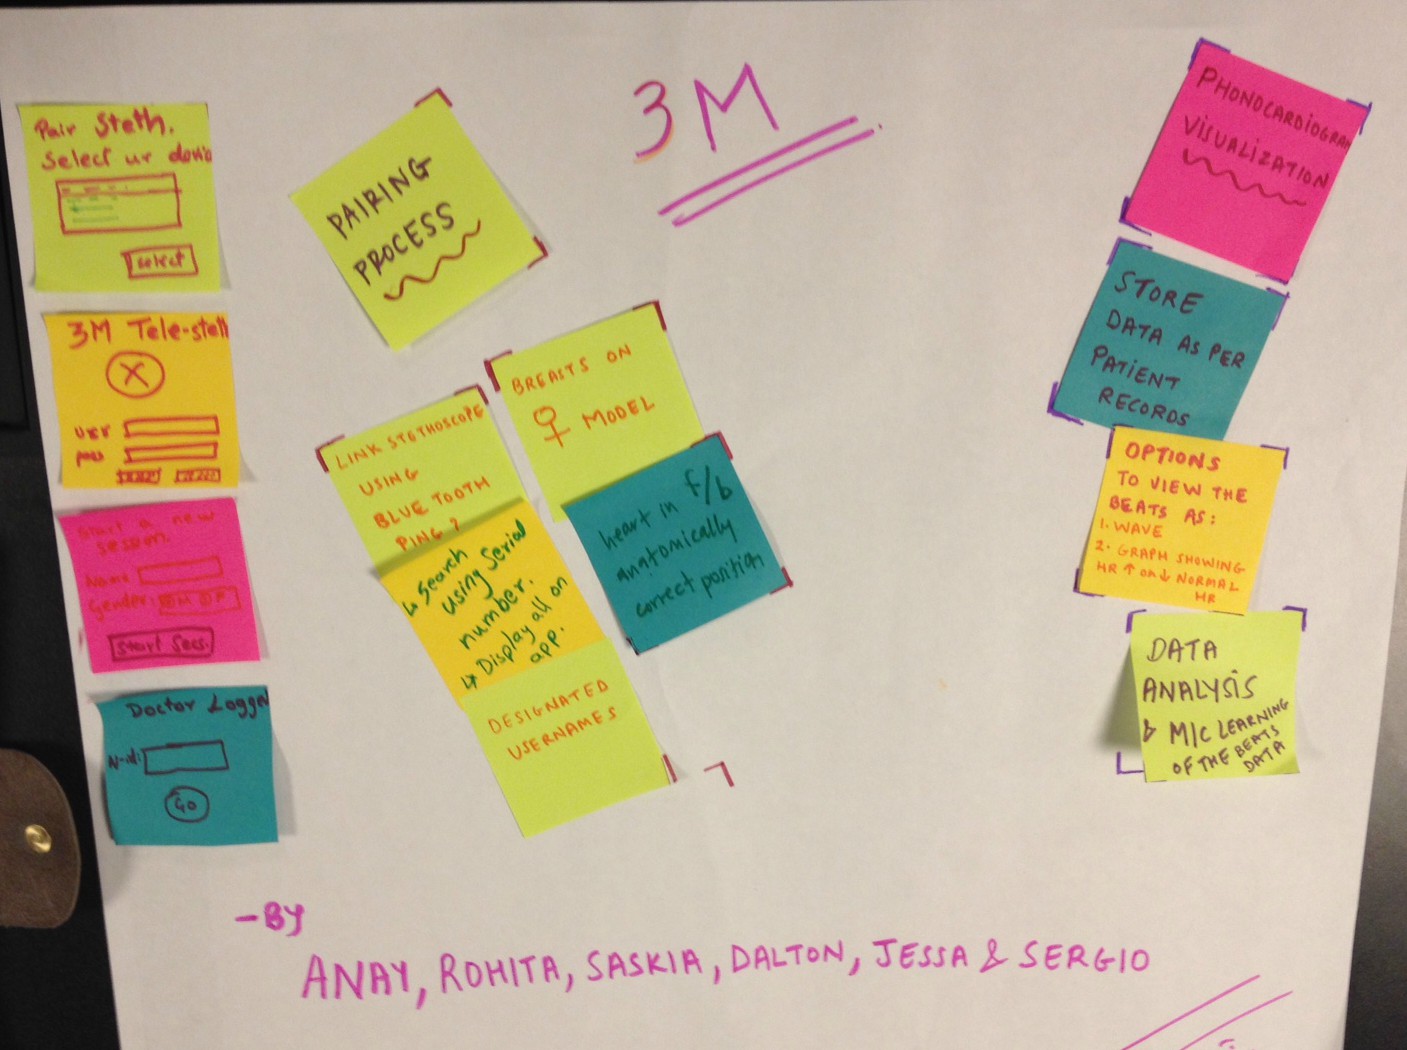 3M
Pair Steth.
Select ur device
select
3M Tele-steth
X
user
pass
Start a new
session.
Name
Gender: M F
Start Sess.
Doctor Logged
GO
PAIRING
PROCESS
BREASTS ON
♀ MODEL
LINK STETHOSCOPE
USING
BLUE TOOTH
PING ?
↳ Search
using Serial
number.
↳ Display all on
app.
heart in f/b
anatomically
correct position
DESIGNATED
USERNAMES
PHONOCARDIOGRAM
VISUALIZATION
STORE
DATA AS PER
PATIENT
RECORDS
OPTIONS
TO VIEW THE
BEATS AS:
1. WAVE
2. GRAPH SHOWING
HR ↑ OR ↓ NORMAL
HR
DATA
ANALYSIS
& M/C LEARNING
OF THE BEATS
DATA
- BY
ANAY, ROHITA, SASKIA, DALTON, JESSA & SERGIO